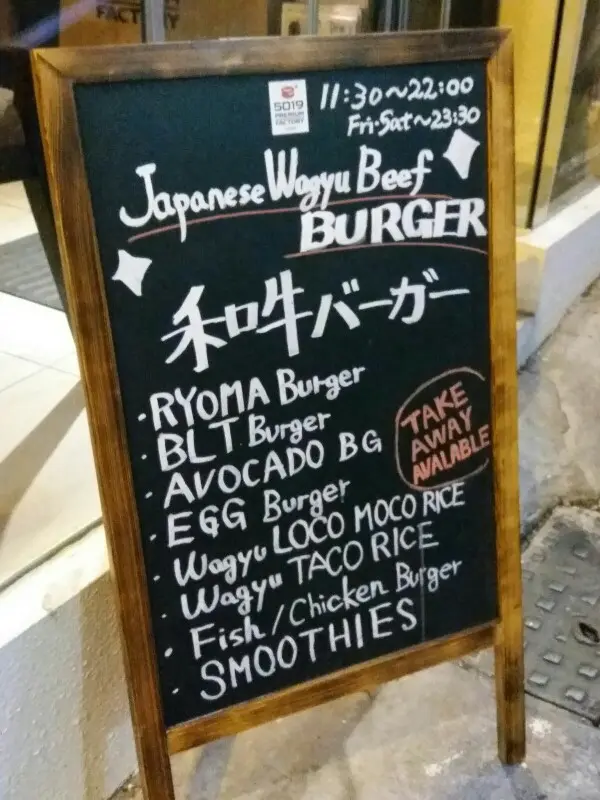 FACTORY
5019
PREMIUM
FACTORY
11:30～22:00
Fri・Sat～23:30
Japanese Wagyu Beef
BURGER
和牛バーガー
・RYOMA Burger
・BLT Burger
・AVOCADO BG
・EGG Burger
・Wagyu LOCO MOCO RICE
・Wagyu TACO RICE
・Fish/Chicken Burger
・SMOOTHIES
TAKE
AWAY
AVALABLE